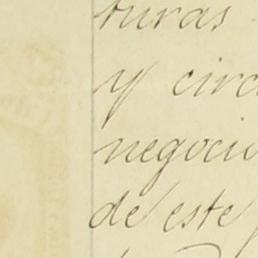 turas
y circ
negociu
de este